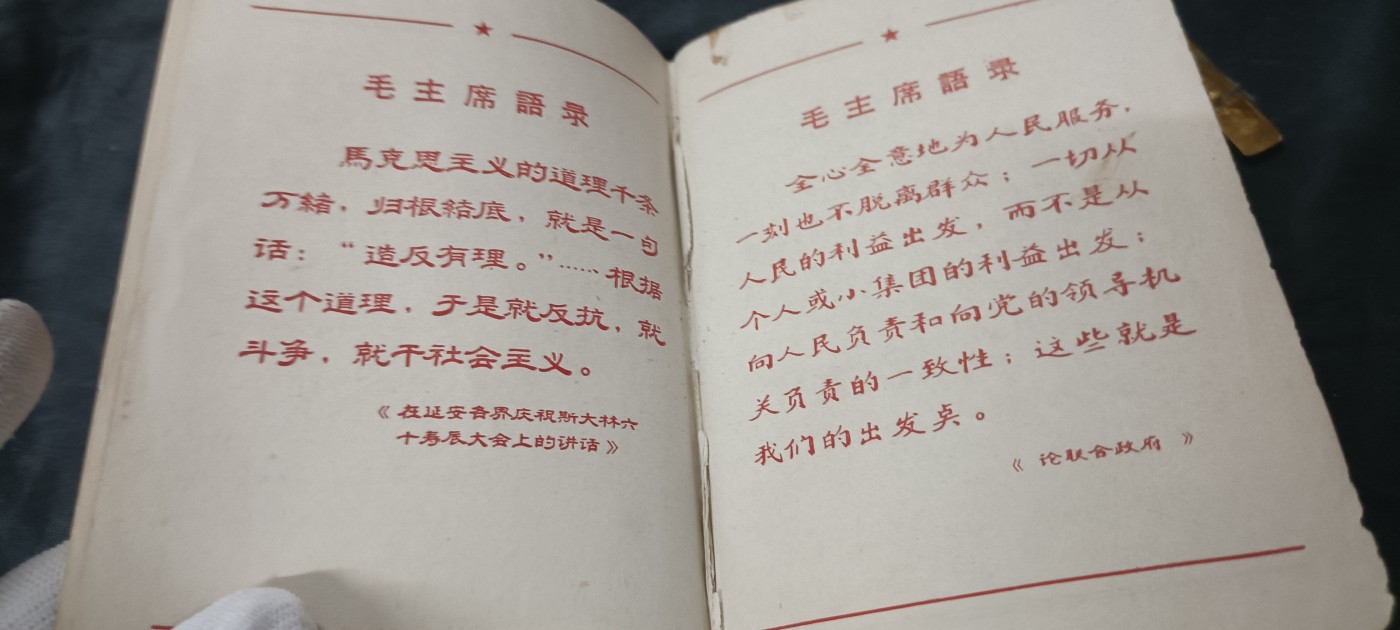 毛主席語录
馬克思主义的道理千条
万緒，归根結底，就是一句
话：“造反有理。”……根据
这个道理，于是就反抗，就
斗争，就干社会主义。
《在延安各界庆祝斯大林六
十寿辰大会上的讲话》
毛主席語录
全心全意地为人民服务，
一刻也不脱离群众；一切从
人民的利益出发，而不是从
个人或小集团的利益出发；
向人民负责和向党的领导机
关负责的一致性；这些就是
我们的出发点。
《论联合政府》